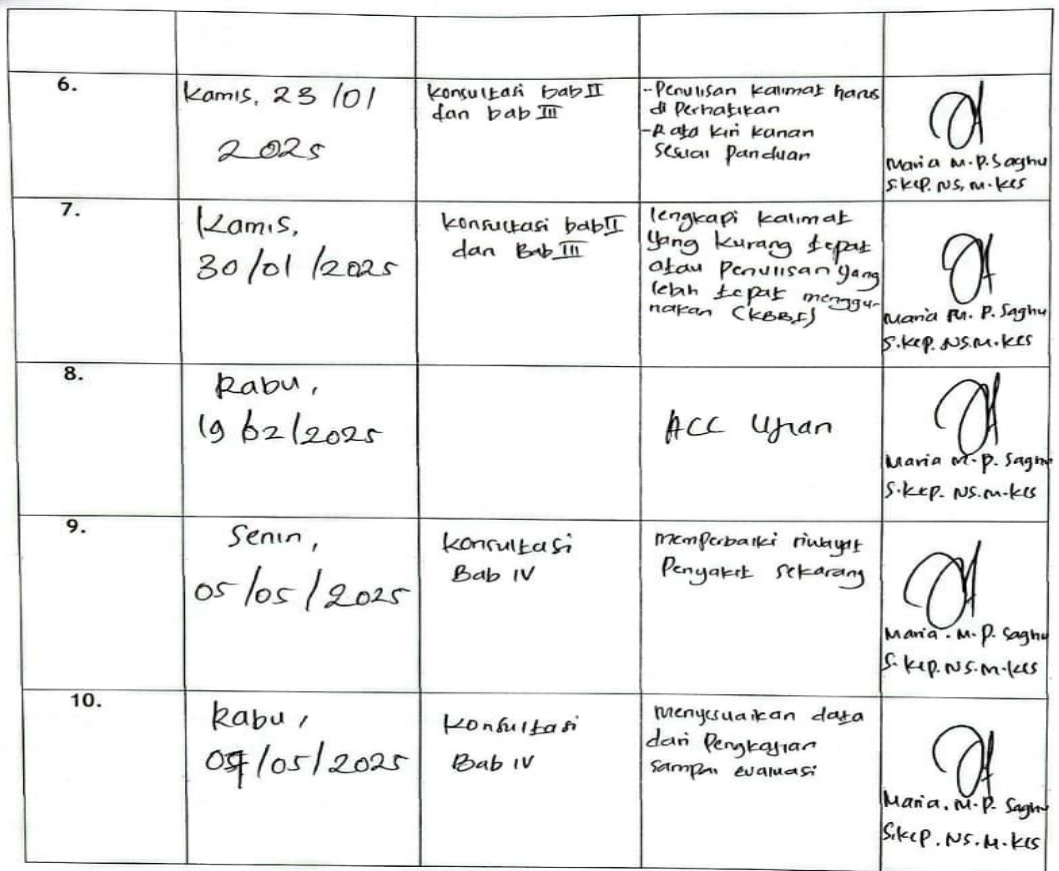 6.
Kamis, 23 /01
2025
Konsultasi bab II
dan bab III
-Penulisan kalimat harus
di Perhatikan
-Rata kiri kanan
sesuai Panduan
Maria M.P. Saghu
S.Kep. NS, M.Kes
7.
Kamis,
30/01/2025
Konsultasi bab II
dan Bab III
lengkapi kalimat
yang kurang tepat
atau Penulisan yang
lebih tepat menggu-
nakan (KBBI)
Maria M. P. Saghu
S.Kep. NS.M.Kes
8.
Rabu,
19 02/2025
ACC Ujian
Maria M.P. Saghu
S.Kep. NS.M.Kes
9.
Senin,
05/05/2025
Konsultasi
Bab IV
memperbaiki riwayat
Penyakit sekarang
Maria. M.P. Saghu
S.Kep.NS.M.Kes
10.
Rabu,
07/05/2025
Konsultasi
Bab IV
Menyesuaikan data
dari Pengkajian
sampai evaluasi
Maria. M.P. Saghu
S.Kep. NS. M.Kes